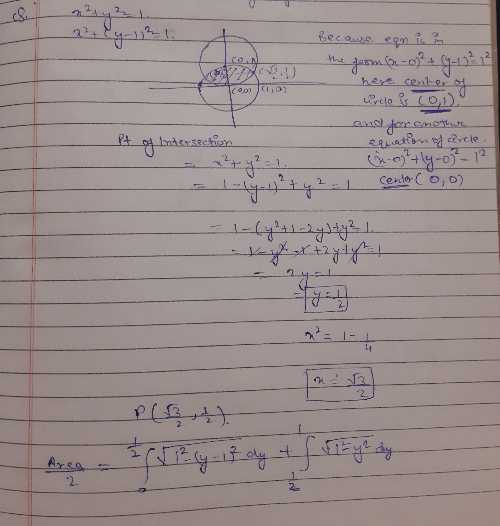 Q8. x²+y²=1.
x²+(y-1)²=1.
(0,1)
(√3/2, 1/2)
(0,0) (1,0)
Because eqn is in
the form (x-0)²+(y-1)²=1²
here center of
circle is (0,1)
and for another
equation of circle.
(x-0)²+(y-0)²=1²
center (0,0)
Pt of Intersection
= x²+y²=1.
= 1-(y-1)²+y²=1
= 1-(y²+1-2y)+y²=1.
= 1-y²-1+2y+y²=1
= 2y=1
= y=1/2
x² = 1-1/4
x = √3/2
P(√3/2, 1/2).
Area/2 = ∫₀^(1/2) √1²-(y-1)² dy + ∫_(1/2)^1 √1²-y² dy